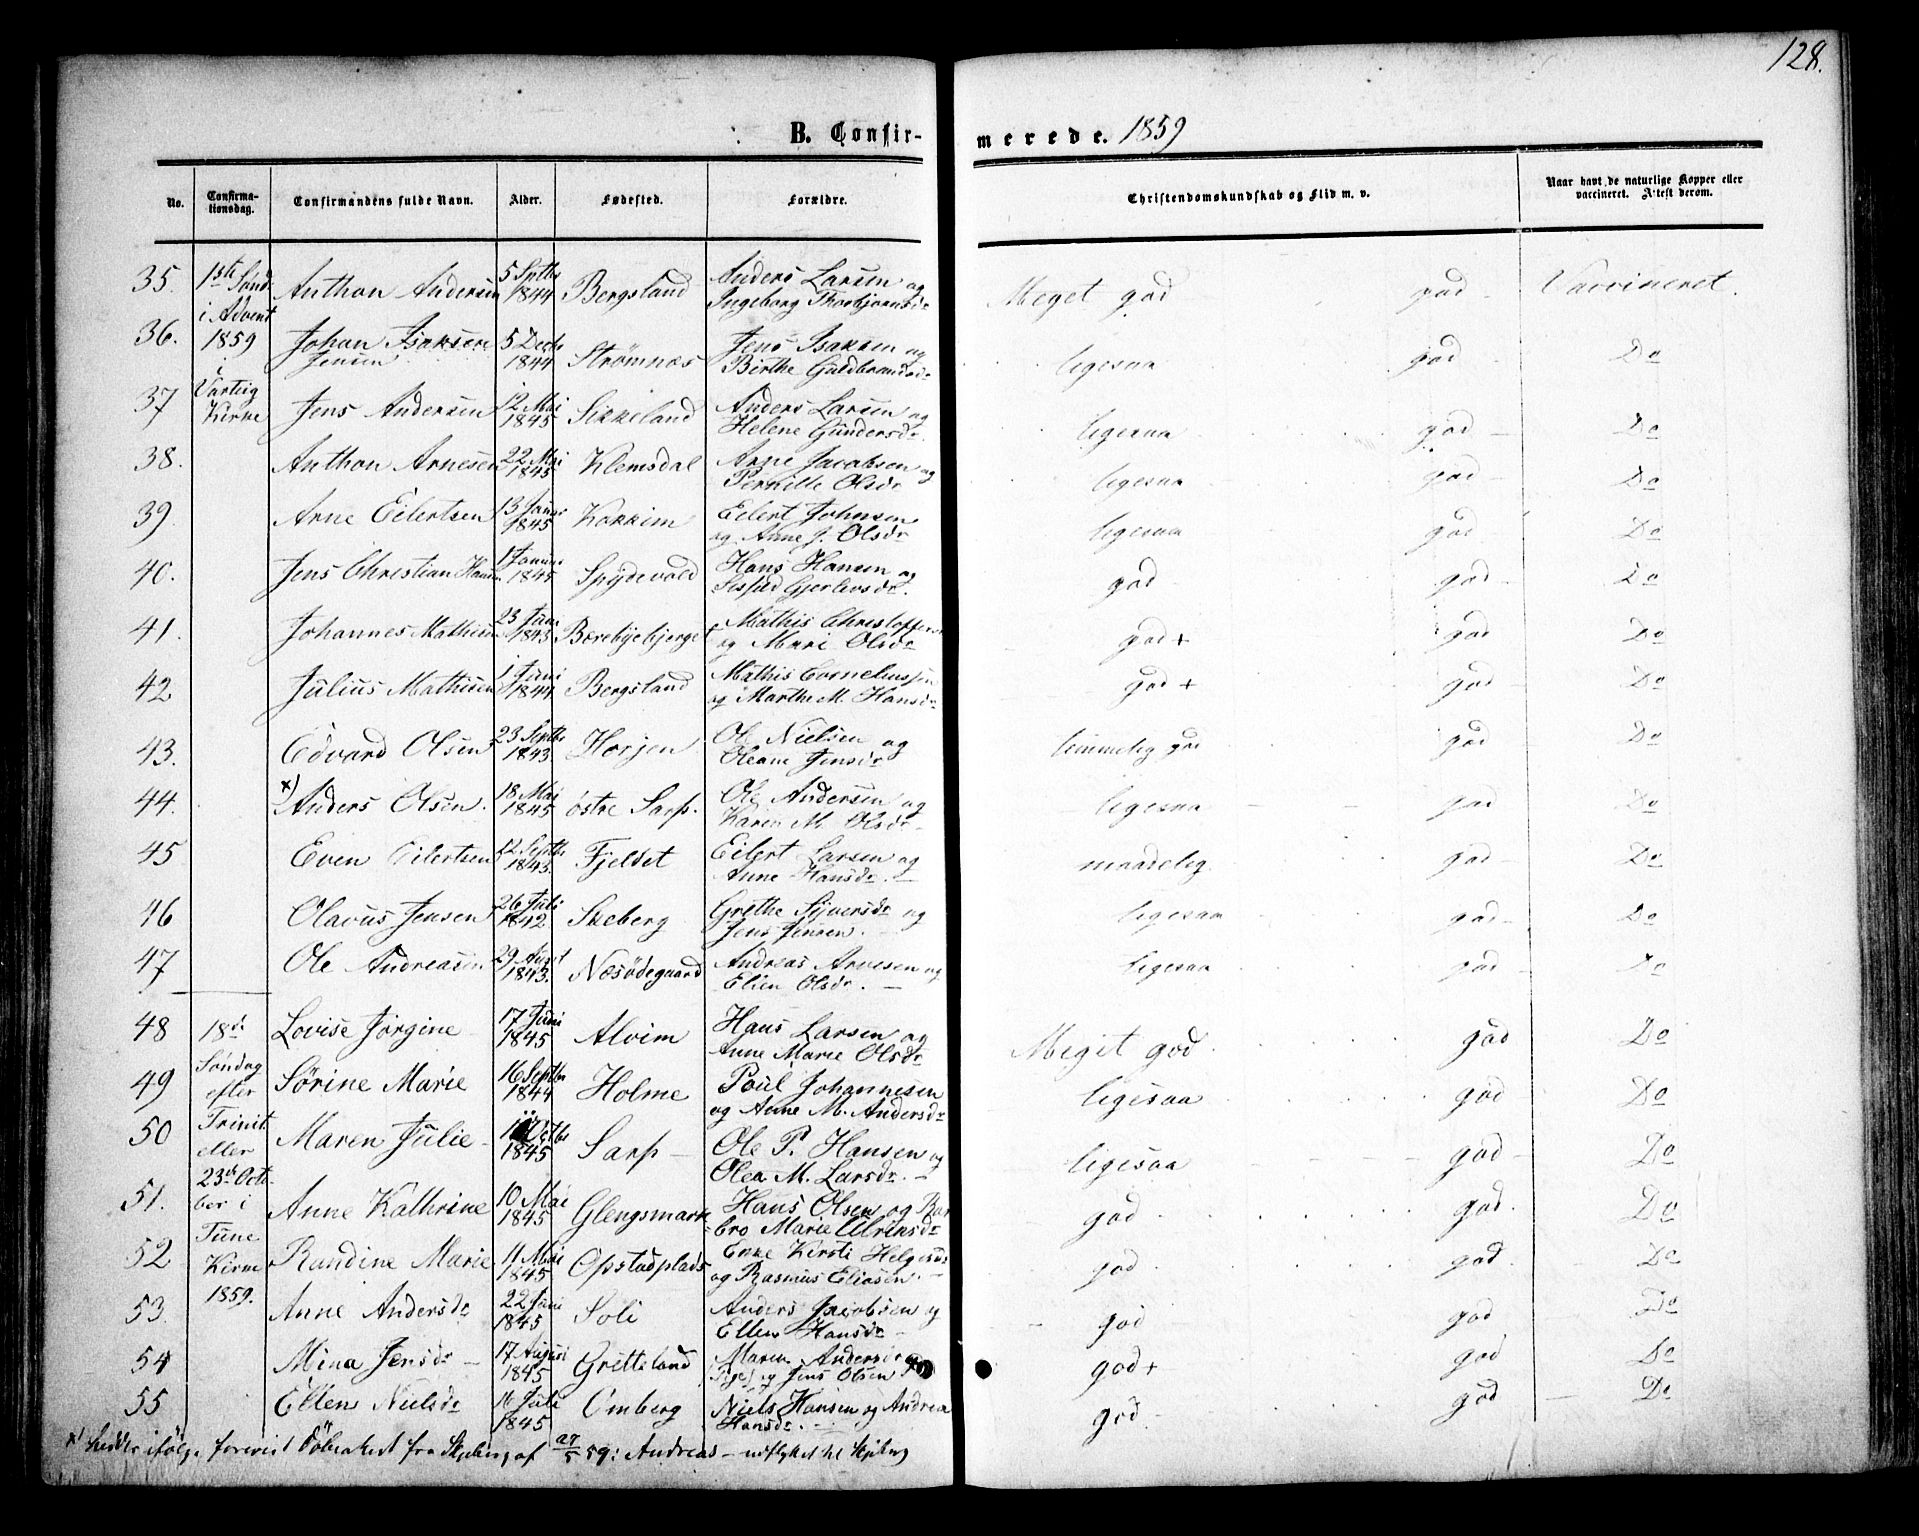 128.
B. Confirmerede. 1859
No.
Confirmationsdag.
Confirmandens fulde Navn.
Alder.
Fødested.
Forældre.
Christendomskundskab og Flid m. v.
Naar havt de naturlige Kopper eller vaccineret. Attest derom.
35. 1ste Sønd. i Advent 1859 i Varteig Kirke Anthon Andersen 5 Septbr 1844 Bergsland Anders Larsen og Ingeborg Thorbjørnsdr Meget god god Vaccineret.
36. Johan Isaksen Jensen 5 Decbr 1844 Strømnæs Jens Isaksen og Birthe Guldbrandsdr ligesaa god Do
37 Jens Andersen 12 Mai 1845 Sikkeland Anders Larsen og Helene Gundersdr ligesaa god Do
38. Anthon Arnesen 22 Mai 1845 Klemsdal Arne Jacobsen og Pernille Olsdr ligesaa god Do
39. Arne Eilertsen 13 Januar 1845 Kokkim Eilert Johnsen og Anne J. Olsdr ligesaa god Do
40. Jens Christian Hansen 1 Januar 1845 Spydevold Hans Hansen og Gjerlevsdr. god god Do
41. Johannes Mathisen 23 Juni 1843 Borebyebjerget Mathis Christoffersen og Mari Olsdr god + god Do
42 Julius Mathisen 1 Juni 1844 Bergsland Mathis Corneliussen og Marthe M. Hansdr god + god Do
43. Edvard Olsen 23 Septbr 1843. Horjen Ole Nielsen og Oleane Jensdr temmelig god god Do
44. x) Anders Olsen. 18 Mai 1845 østre Sarp. Ole Andersen og Karen M. Olsdr. ligesaa god Do
45 Even Eilertsen 12 Septbr 1843. Fjeldet Eilert Larsen og Anne Hansdr. maadelig god Do
46 Olavus Jensen 26 Juli 1842 Skeberg Grethe Sjversdr og Jens Jensen. ligesaa god Do
47 Ole Andreasen 29 August 1843. Næsødegaard Andreas Arnesen og Elien Olsdr. ligesaa god Do
48 18de Søndag efter Trinit. eller 23de October i Tune Kirke 1859. Lovise Jørgine 17 Juni 1845 Alvim Hans Larsen og Anne Marie Olsdr Meget god god Do
49 Sørine Marie 16 Septbr 1844 Holme Poul Johannesen og Anne M. Andersdr ligesaa god Do
50 Maren Julie Octbr 1845 Sarp Ole P. Hansen og Olea M. Larsdr. ligesaa god Do
51. Anne Kathrine 10 Mai 1845 Glengsmark Hans Olsen og Barbro Marie Ulriksdr god god. Do
52 Randine Marie 11 Mai 1845 Opstadplads Enke Kirsti Helgesdr og Rasmus Eliasen. god god. Do
53. Anne Andersdr 22 Juni 1845 Soli Anders Jacobsen og Ellen Hansdr god god Do
54 Mina Jensdr 17 August 1845 Gritteland Maren Andersdr Pige og Jens Olsen god + god Do
55 Ellen Nielsdr 16 Juli 1845 Omberg Niels Hansen og Andrea Hansdr. god god Do
x) hedder ifølge forevist Døbeattest fra Skjeberg af 27/5 59: Andreas – udflyttet til Skjeberg